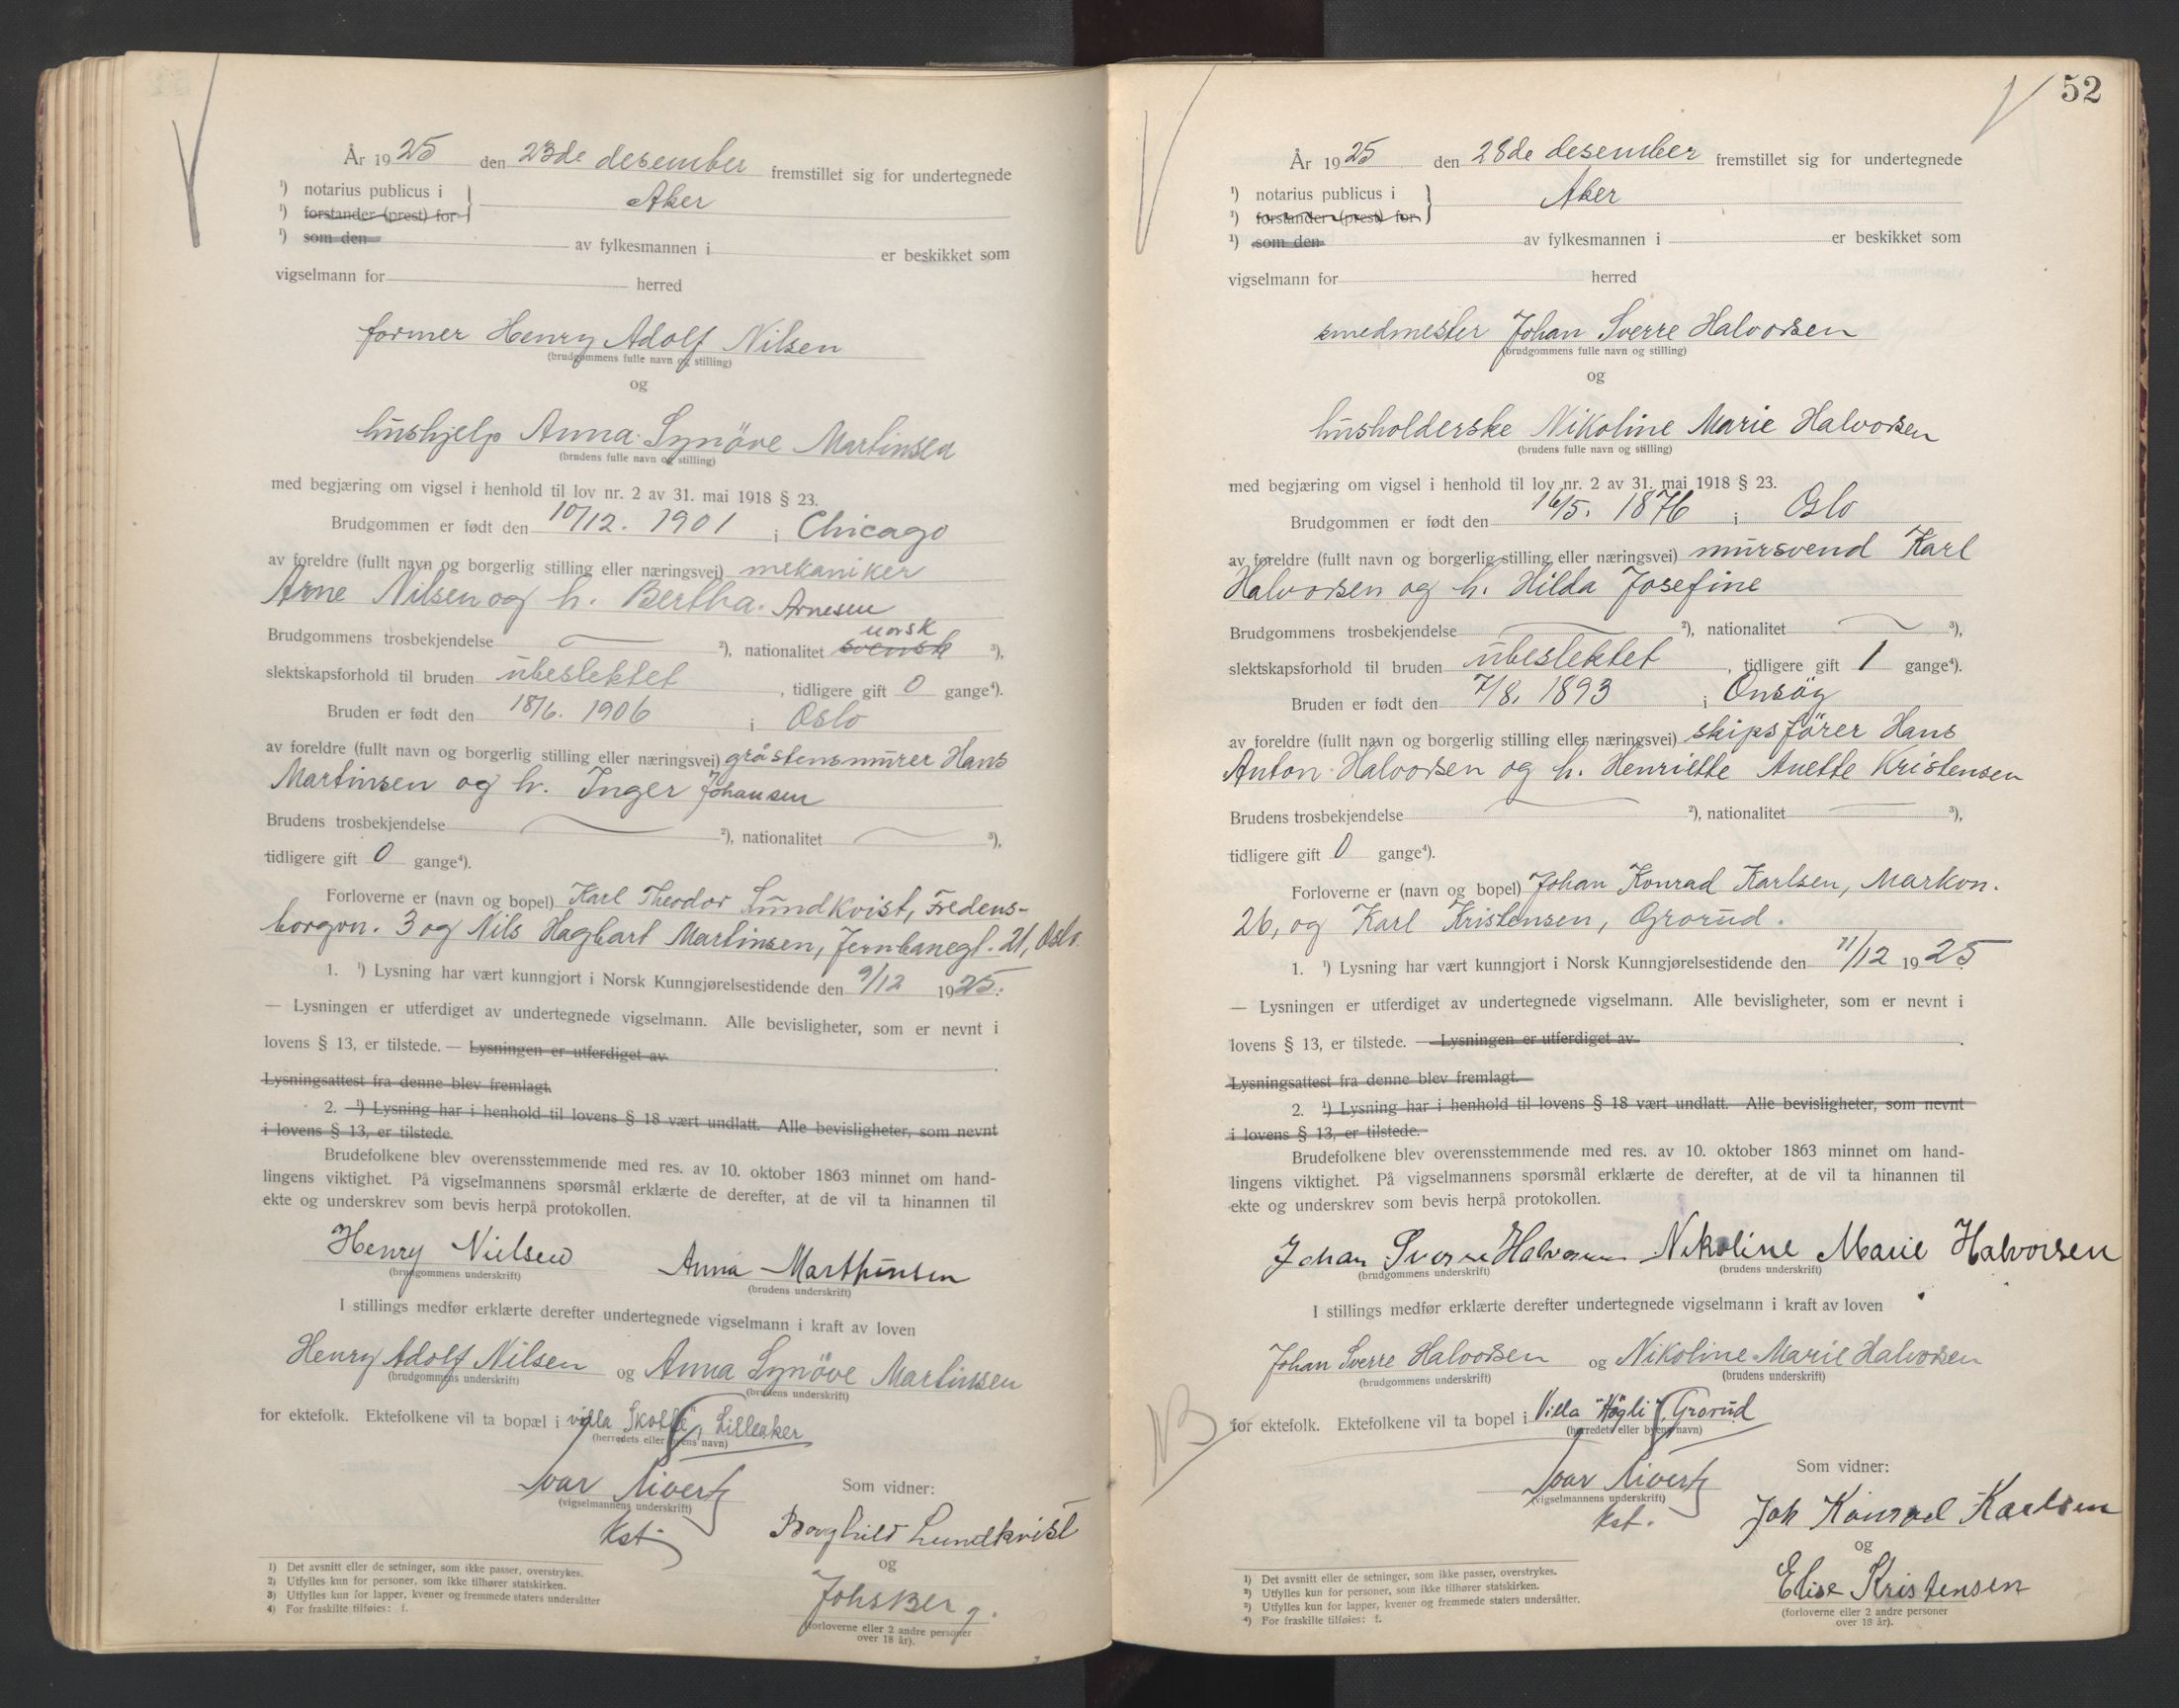 År 1925 den 23de desember fremstillet sig for undertegnede
¹) notarius publicus i } Aker
¹) forstander (prest) for
¹) som den av fylkesmannen i er beskikket som
vigselmann for herred
former Henry Adolf Nilsen
(brudgommens fulle navn og stilling)
og
hushjelp Anna Synöve Martinsen
(brudens fulle navn og stilling)
med begjæring om vigsel i henhold til lov nr. 2 av 31. mai 1918 § 23.
Brudgommen er født den 10/12. 1901 i Chicago
av foreldre (fullt navn og borgerlig stilling eller næringsvei) mekaniker
Arne Nilsen og h. Bertha Arnesen
norsk
Brudgommens trosbekjendelse ²), nationalitet svensk ³),
slektskapsforhold til bruden ubeslektet, tidligere gift 0 gange⁴).
Bruden er født den 18/6. 1906 i Oslo
av foreldre (fullt navn og borgerlig stilling eller næringsvei) gråstensmurer Hans
Martinsen og h. Inger Johansen
Brudens trosbekjendelse ²), nationalitet ³),
tidligere gift 0 gange⁴).
Forloverne er (navn og bopel) Karl Theodor Lundkvist, Fredens-
borgvn. 3 og Nils Hagbart Martinsen, Jernbanegt. 21, Oslo.
1. ¹) Lysning har vært kunngjort i Norsk Kunngjørelsestidende den 9/12 1925.
— Lysningen er utferdiget av undertegnede vigselmann. Alle bevisligheter, som er nevnt i
lovens § 13, er tilstede. — Lysningen er utferdiget av
Lysningsattest fra denne blev fremlagt.
2. ¹) Lysning har i henhold til lovens § 18 vært undlatt. Alle bevisligheter, som nevnt
i lovens § 13, er tilstede.
Brudefolkene blev overensstemmende med res. av 10. oktober 1863 minnet om hand-
lingens viktighet. På vigselmannens spørsmål erklærte de derefter, at de vil ta hinannen til
ekte og underskrev som bevis herpå protokollen.
Henry Nielsen Anna Marthinsen
(brudgommens underskrift) (brudens underskrift)
I stillings medfør erklærte derefter undertegnede vigselmann i kraft av loven
Henry Adolf Nilsen og Anna Synöve Martinsen
(brudgommens underskrift) (brudens underskrift)
for ektefolk. Ektefolkene vil ta bopæl i villa Lilleaker
(herredets eller byens navn)
Som vidner:
Ivar Sivertz
(vigselmannens underskrift)
Kst.
Borghild Lundkvist
og
Johs Berg.
(forloverne eller 2 andre personer
over 18 år).
1) Det avsnitt eller de setninger, som ikke passer, overstrykes.
2) Utfylles kun for personer, som ikke tilhører statskirken.
3) Utfylles kun for lapper, kvener og fremmede staters undersåtter
4) For fraskilte tilføies: f.
52
År 1925 den 28de desember fremstillet sig for undertegnede
¹) notarius publicus i } Aker
¹) forstander (prest) for
¹) som den av fylkesmannen i er beskikket som
vigselmann for herred
smedmester Johan Sverre Halvorsen
(brudgommens fulle navn og stilling)
og
husholderske Nikoline Marie Halvorsen
(brudens fulle navn og stilling)
med begjæring om vigsel i henhold til lov nr. 2 av 31. mai 1918 § 23.
Brudgommen er født den 16/5. 1876 i Oslo
av foreldre (fullt navn og borgerlig stilling eller næringsvei) mursvend Karl
Halvorsen og h. Hilda Josefine
Brudgommens trosbekjendelse ²), nationalitet ³),
slektskapsforhold til bruden ubeslektet, tidligere gift 1 gange⁴).
Bruden er født den 7/8. 1893 i Onsöy
av foreldre (fullt navn og borgerlig stilling eller næringsvei) skipsförer Hans
Anton Halvorsen og h. Henriette Anette Kristensen
Brudens trosbekjendelse ²), nationalitet ³),
tidligere gift 0 gange⁴).
Forloverne er (navn og bopel) Johan Konrad Karlsen, Markvn.
26, og Karl Kristensen, Grorud.
1. ¹) Lysning har vært kunngjort i Norsk Kunngjørelsestidende den 11/12 1925
— Lysningen er utferdiget av undertegnede vigselmann. Alle bevisligheter, som er nevnt i
lovens § 13, er tilstede. — Lysningen er utferdiget av
Lysningsattest fra denne blev fremlagt.
2. ¹) Lysning har i henhold til lovens § 18 vært undlatt. Alle bevisligheter, som nevnt
i lovens § 13, er tilstede.
Brudefolkene blev overensstemmende med res. av 10. oktober 1863 minnet om hand-
lingens viktighet. På vigselmannens spørsmål erklærte de derefter, at de vil ta hinannen til
ekte og underskrev som bevis herpå protokollen.
Johan Sverre Halvorsen Nikoline Marie Halvorsen
(brudgommens underskrift) (brudens underskrift)
I stillings medfør erklærte derefter undertegnede vigselmann i kraft av loven
Johan Sverre Halvorsen og Nikoline Marie Halvorsen
(brudgommens underskrift) (brudens underskrift)
for ektefolk. Ektefolkene vil ta bopel i Villa "Högli", Grorud
(herredets eller byens navn)
Som vidner:
Ivar Sivertz
(vigselmannens underskrift)
Kst.
Joh Konrad Karlsen
og
Elise Kristensen
(forloverne eller 2 andre personer
over 18 år).
1) Det avsnitt eller de setninger, som ikke passer, overstrykes.
²) Utfylles kun for personer, som ikke tilhører statskirken.
³) Utfylles kun for lapper, kvener og fremmede staters undersåtter.
⁴) For fraskilte tilføies: f.